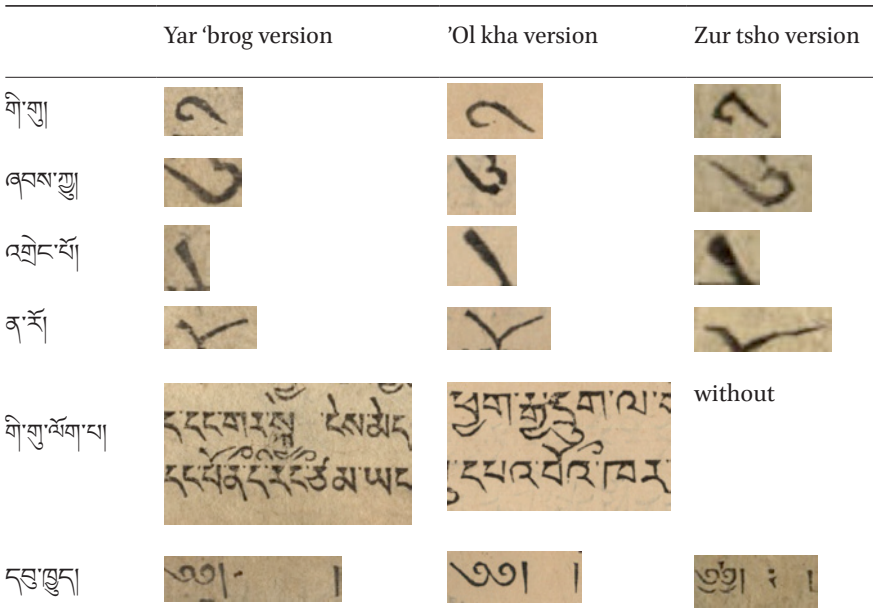 Yar ‘brog version ’Ol kha version Zur tsho version
གི་གུ།
ཞབས་ཀྱུ།
འགྲེང་པོ།
ན་རོ།
གི་གུ་ལོག་པ། without
དབུ་ཁྱུད།